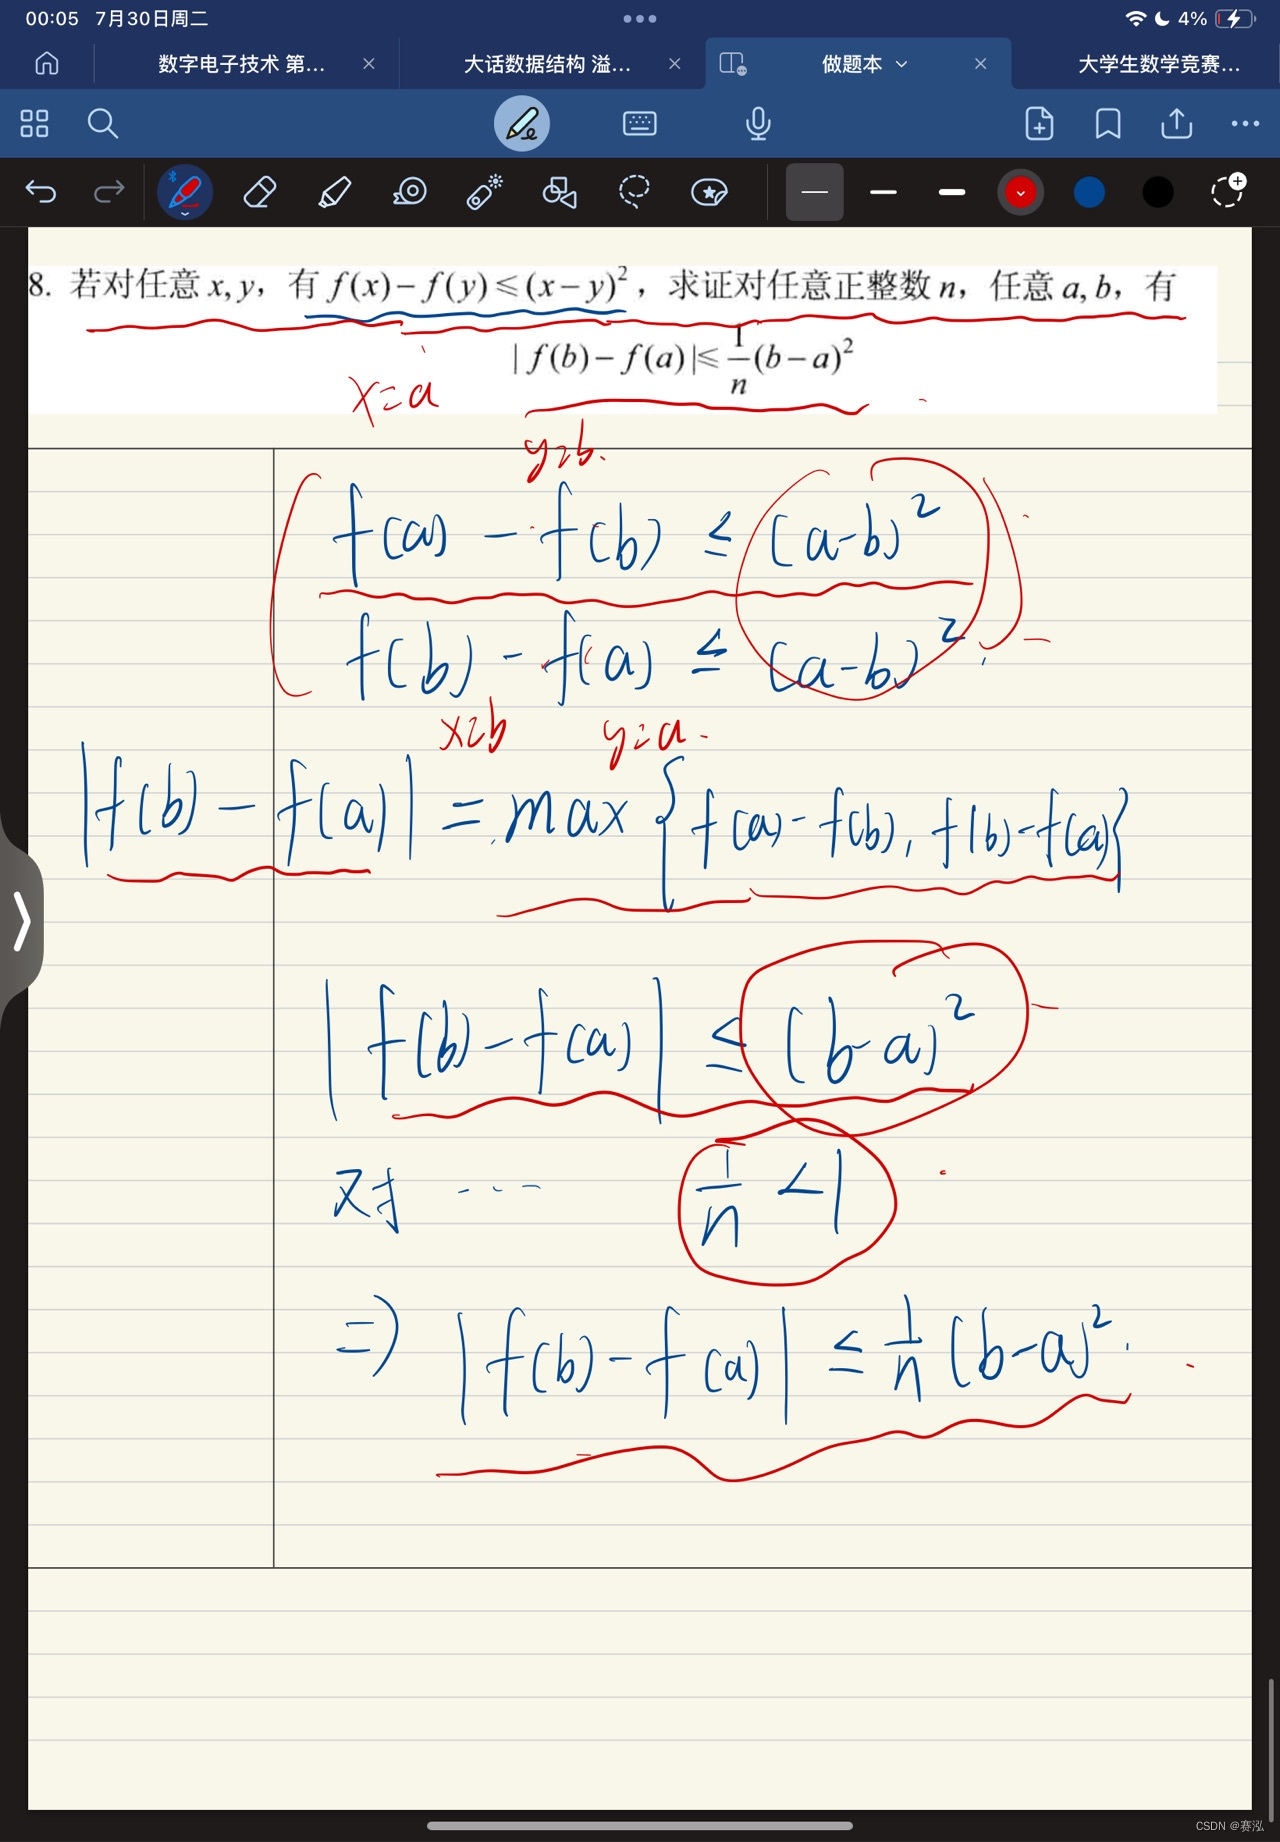 00:05 7月30日周二
4%
数字电子技术 第...
大话数据结构 溢...
做题本
大学生数学竞赛...
8. 若对任意 x, y，有 f(x)−f(y)≤(x−y)²，求证对任意正整数 n，任意 a, b，有
|f(b)−f(a)|≤\frac{1}{n}(b−a)²
x=a
y=b.
f(a) − f(b) ≤ (a-b)²
f(b) - f(a) ≤ (a-b)²
x=b y=a.
|f(b) − f(a)| = max {f(a)-f(b), f(b)-f(a)}
|f(b)-f(a)| ≤ (b-a)²
又对 ... \frac{1}{n} <1
⇒ |f(b)-f(a)| ≤ \frac{1}{n} (b-a)².
CSDN @赛泓